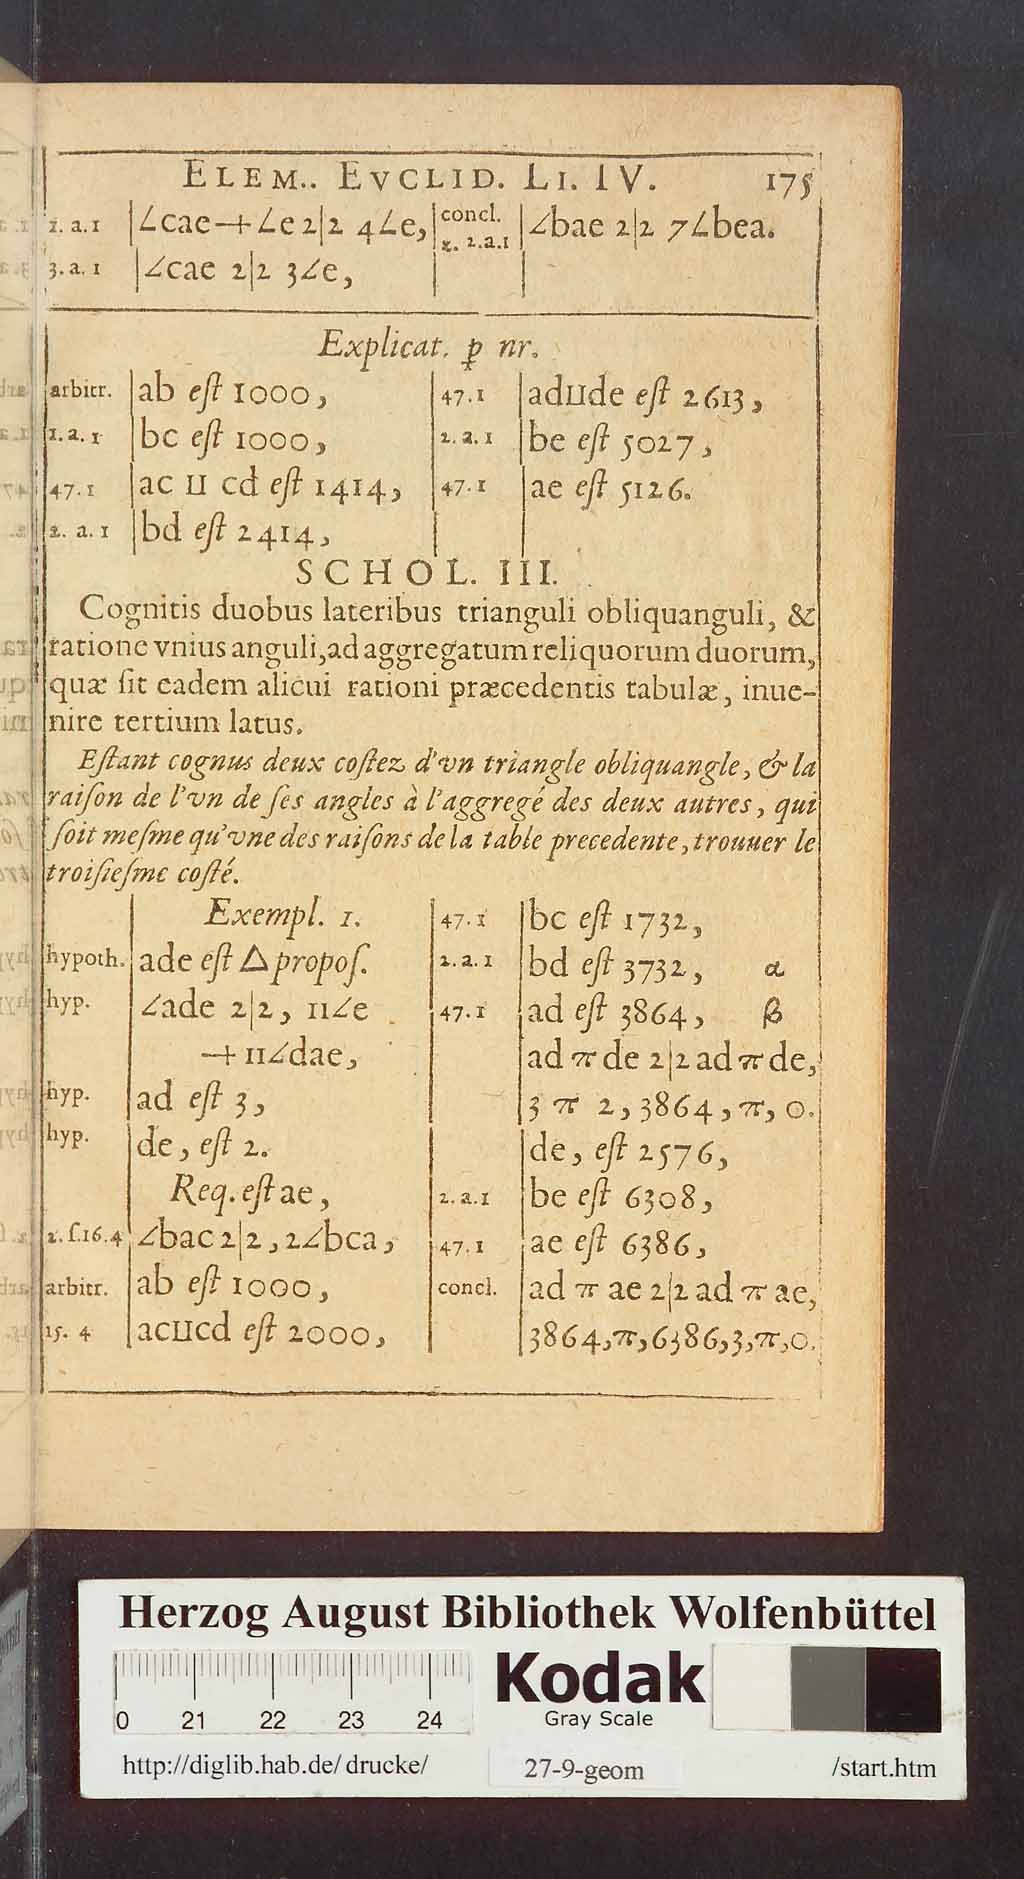 ELEM.. EVCLID. LI. IV. 175
1. a. 1 ∠cae+∠e 2|2 4∠e, concl. 2. a. 1 ∠bae 2|2 7∠bea.
3. a. 1 ∠cae 2|2 3∠e,
Explicat. p nr.
arbitr. ab eſt 1000, 47.1 ad⊔de eſt 2613,
1. a. 1 bc eſt 1000, 2. a. 1 be eſt 5027,
47.1 ac ⊔ cd eſt 1414, 47.1 ae eſt 5126.
2. a. 1 bd eſt 2414,
SCHOL. III.
Cognitis duobus lateribus trianguli obliquanguli, &
ratione vnius anguli, ad aggregatum reliquorum duorum,
quæ ſit eadem alicui rationi præcedentis tabulæ, inue-
nire tertium latus.
Eſtant cognus deux coſtez d'vn triangle obliquangle, & la
raiſon de l'vn de ſes angles à l'aggregé des deux autres, qui
ſoit meſme qu'vne des raiſons de la table precedente, trouuer le
troiſieſme coſté.
Exempl. 1. 47.1 bc eſt 1732,
hypoth. ade eſt △ propoſ. 2. a. 1 bd eſt 3732, α
hyp. ∠ade 2|2, 11∠e 47.1 ad eſt 3864, β
+11∠dae, ad π de 2|2 ad π de,
hyp. ad eſt 3, 3 π 2, 3864, π, 0.
hyp. de, eſt 2. de, eſt 2576,
Req. eſt ae, 2. a. 1 be eſt 6308,
2. ſ. 16. 4 ∠bac 2|2, 2∠bca, 47.1 ae eſt 6386,
arbitr. ab eſt 1000, concl. ad π ae 2|2 ad π ae,
15. 4 ac⊔cd eſt 2000, 3864, π, 6386, 3, π, 0.
Herzog August Bibliothek Wolfenbüttel
Kodak
Gray Scale
0 21 22 23 24
http://diglib.hab.de/ drucke/ 27-9-geom /start.htm